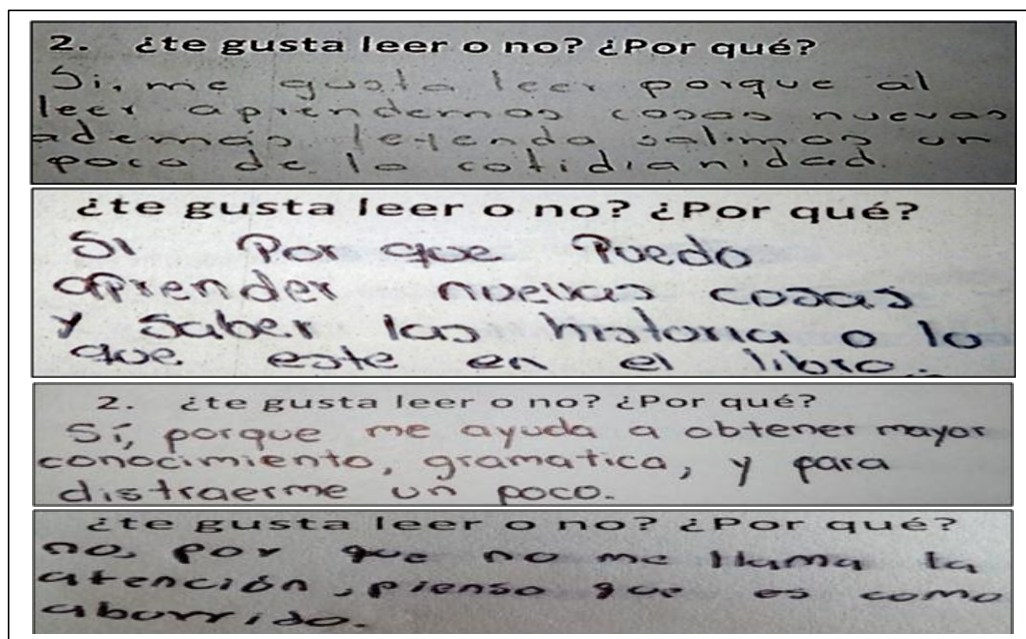 2. ¿te gusta leer o no? ¿Por qué?
Si, me gusta leer porque al
leer aprendemos cosas nuevas
ademas leyendo salimos un
poco de la cotidianidad.
¿te gusta leer o no? ¿Por qué?
Si Por que Puedo
aprender nuevas cosas
y saber las historia o lo
que este en el libro.
2. ¿te gusta leer o no? ¿Por qué?
Sí, porque me ayuda a obtener mayor
conocimiento, gramatica, y para
distraerme un poco.
¿te gusta leer o no? ¿Por qué?
no, por que no me llama la
atención, pienso que es como
aburrido.